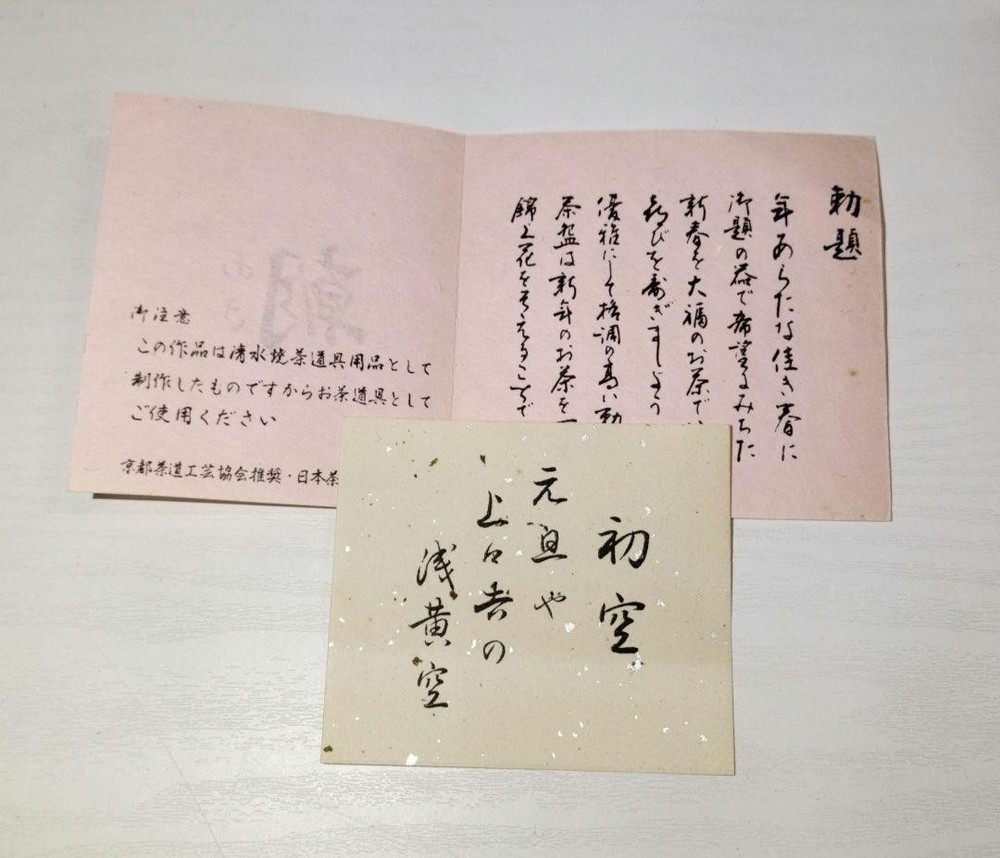 勅題
年あらたな佳き春に
御題の器で希望にみちた
新春を大福のお茶で
喜びを寿ぎましょう
優雅にして格調の高い勅
茶盌は新年のお茶を一
錦上花をそえることで
御注意
この作品は清水焼茶道具用品として
制作したものですからお茶道具として
ご使用ください
京都茶道工芸協会推奨・日本茶
初空
元旦や
上々吉の
浅黄空